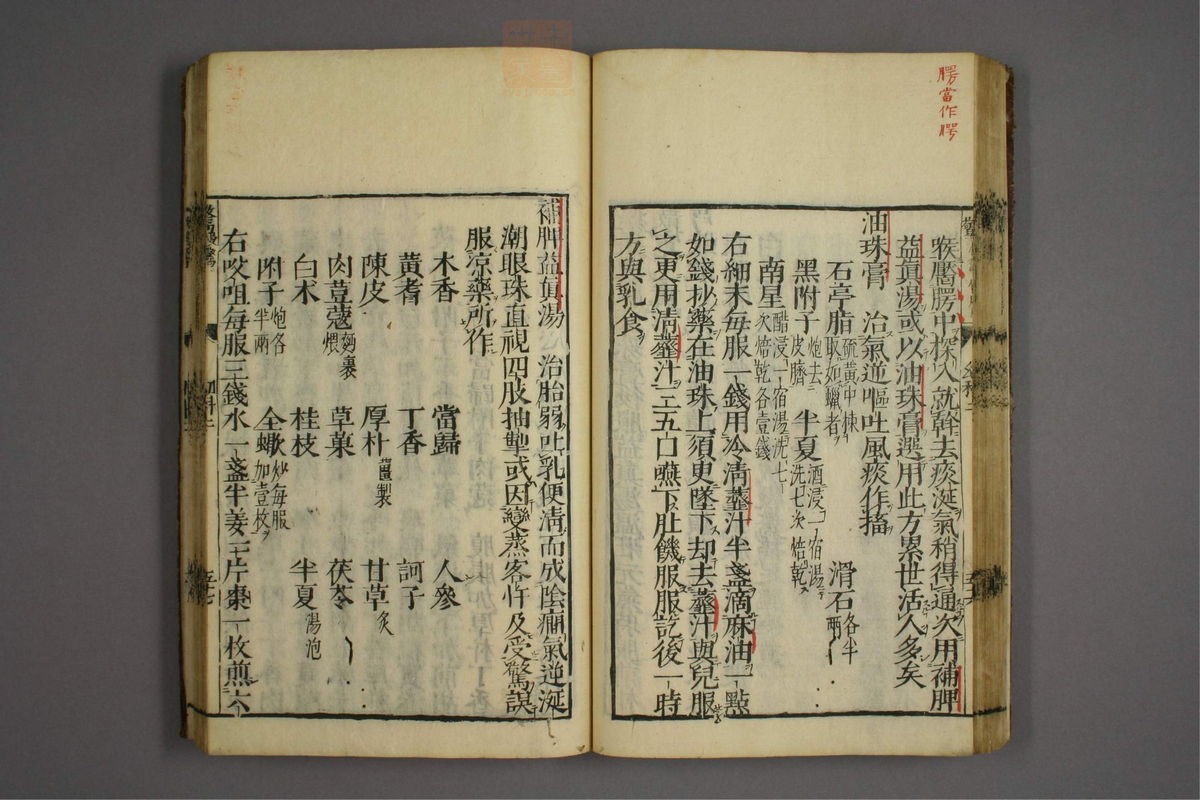 腭當作腭
喉腭腭中探入就幹去痰涎氣稍得通次用補脾
益真湯或以油珠膏選用此方累世活人多矣
油珠膏 治氣逆嘔吐風痰作搐
石亭脂硫黃中揀取如蠟者 滑石各半兩
黑附子炮去皮臍 半夏酒浸一宿湯洗七次焙乾
南星醋浸一宿湯洗七次焙乾各壹錢
右細末每服一錢用冷清虀汁半盞滴麻油一點
如錢抄藥在油珠上須臾墜下却去虀汁與兒服
之更用清虀汁三五口嚥下肚饑服服訖後一時
方與乳食
補脾益真湯 治胎弱吐乳便清而成陰癎氣逆涎
潮眼珠直視四肢抽掣或因變蒸客忤及受驚誤
服凉藥所作
木香 當歸 人參
黃耆 丁香 訶子
陳皮 厚朴薑製 甘草炙
肉荳蔻麪裹煨 草菓 茯苓
白朮 桂枝 半夏湯泡
附子炮各半兩 全蠍炒每服加壹枚
右㕮咀每服三錢水一盞半姜二片棗一枚煎六